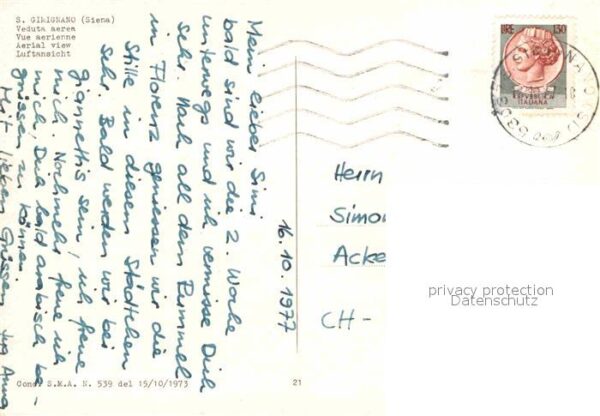 S. GIMIGNANO (Siena)
Veduta aerea
Vue aerienne
Aerial view
Luftansicht
LIRE 130
REPUBBLICA
ITALIANA
16.10.1977
Mein lieber Simi
bald sind wir die 2. Woche
unterwegs und ich vermisse Dich
sehr. Nach all dem Rummel
in Florenz geniessen wir die
Stille in diesem Städtchen
sehr. Bald werden wir bei
giannettis sein, ich freue
mich. Nochmehr freue ich
mich, Dich bald arabisch be-
grüssen zu können.
Mit lieben Grüssen
Anna
Herrn
Simo
Acke
CH-
privacy protection
Datenschutz
Conc. S.M.A. N. 539 del 15/10/1973
21